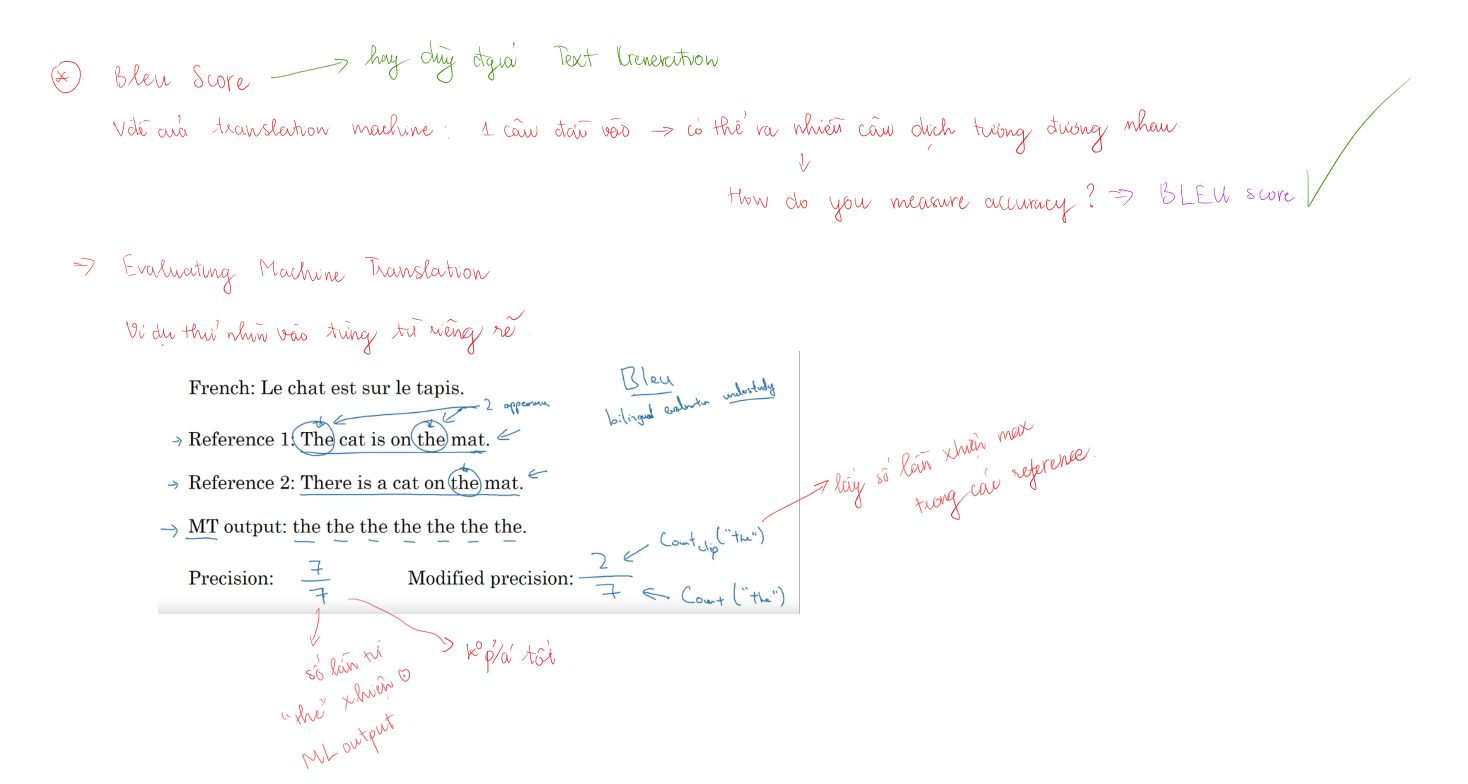 Bleu Score → hay dùng đgiá Text Generation
Vđề của translation machine: 1 câu đầu vào → có thể ra nhiều câu dịch tương đương nhau.
↓
How do you measure accuracy? ⇒ BLEU score
→ Evaluating Machine Translation
Ví dụ thử nhìn vào từng từ riêng rẽ.
French: Le chat est sur le tapis.
Bleu
bilingual evaluation understudy
2 appearance
→ Reference 1: The cat is on the mat. ←
→ Reference 2: There is a cat on the mat. ←
→ MT output: the the the the the the the.
Precision: 7/7
Modified precision: 2/7
← Count clip ("the")
← Count ("the")
lấy số lần xhiện max
trong các reference.
số lần từ
"the" xhiện ở
ML output
k° p/á tốt